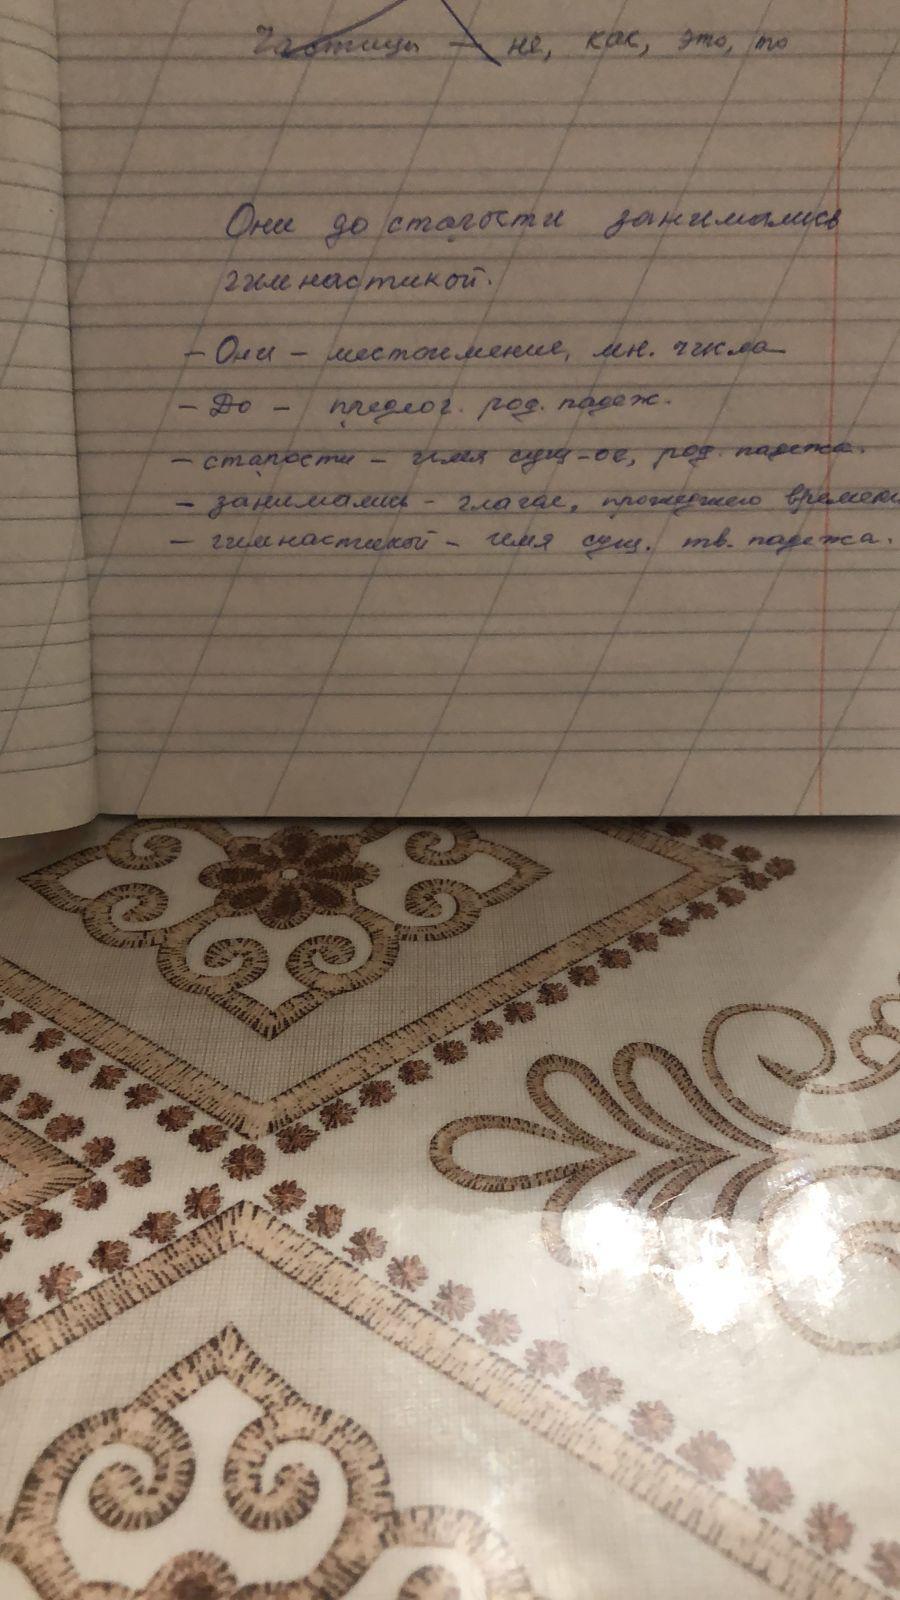 Частицы — не, как, это, то
Они до старости занимались
гимнастикой.
– Они – местоимение, мн. числа
– До – предлог. род. падеж.
– старости – имя сущ-ое, род. падежа.
– занимались – глагол, прошедшего времени
– гимнастикой – имя сущ. тв. падежа.